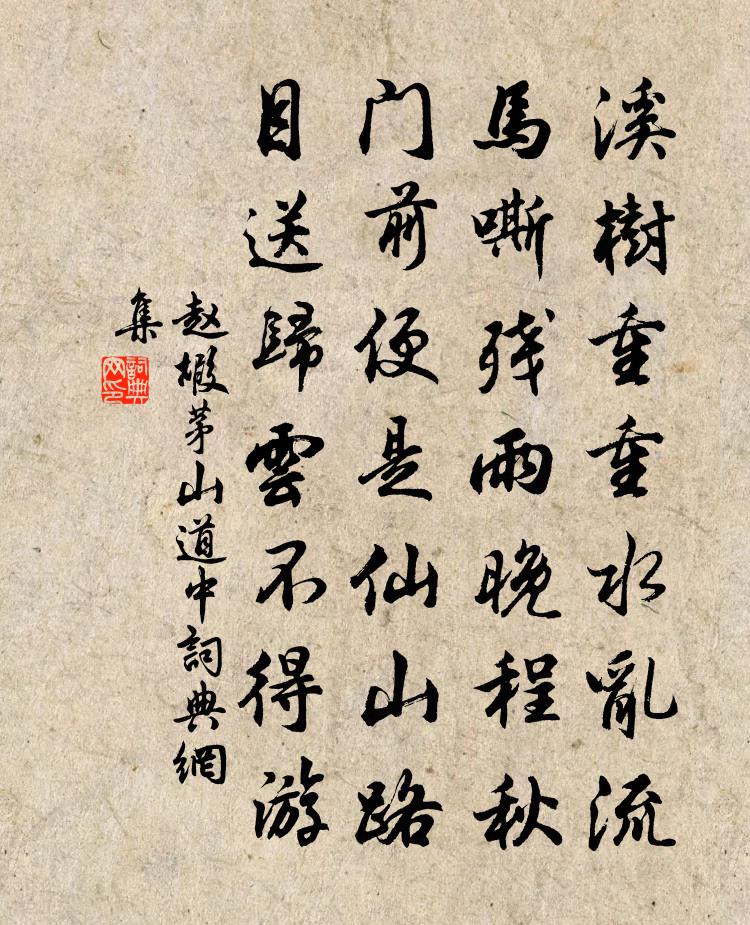 溪樹重重水亂流
馬嘶残雨晚程秋
门前便是仙山路
目送歸雲不得游
赵嘏茅山道中詞典網
集
詞典
网印